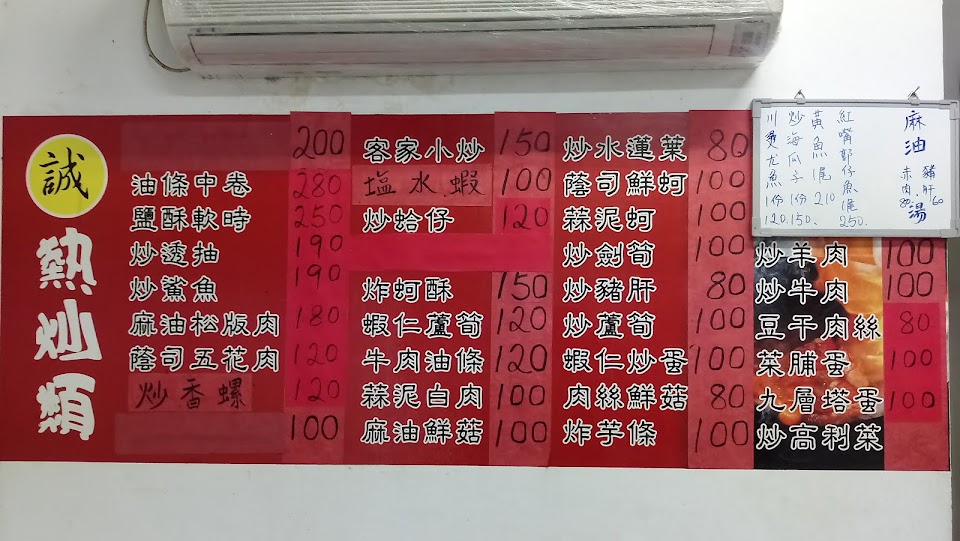 誠
熱炒類
200
油條中卷 280
鹽酥軟時 250
炒透抽 190
炒鯊魚 190
麻油松版肉 180
蔭司五花肉 120
炒香螺 120
100
客家小炒 150
塩水蝦 100
炒蛤仔 120
炸蚵酥 150
蝦仁蘆筍 120
牛肉油條 120
蒜泥白肉 100
麻油鮮菇 100
炒水蓮葉 80
蔭司鮮蚵 100
蒜泥蚵 100
炒劍筍 100
炒豬肝 80
炒蘆筍 100
蝦仁炒蛋 100
肉絲鮮菇 80
炸芋條 100
炒羊肉 100
炒牛肉 100
豆干肉絲 80
菜脯蛋 100
九層塔蛋 100
炒高利菜
麻油湯
豬肝 60
赤肉 80
紅嘴郭仔魚1尾 250.
黃魚1尾 210
炒海瓜子1份 150.
川燙龙魚1份 120.